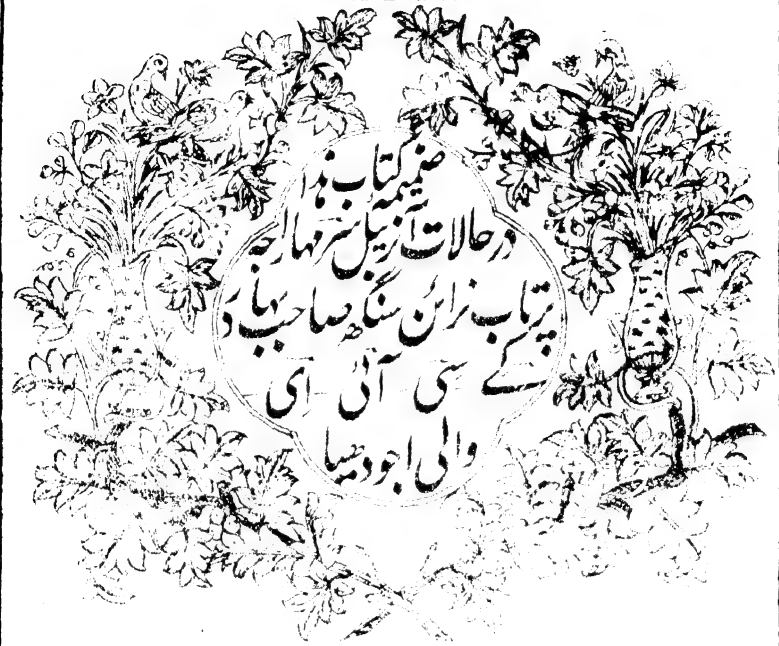 ضمیمہ کتاب ہذا
در حالات آنریبل سر مہاراجہ
پرتاب نرائن سنگھ صاحب بہادر
کے سی آئی ای
والی اجودھیا